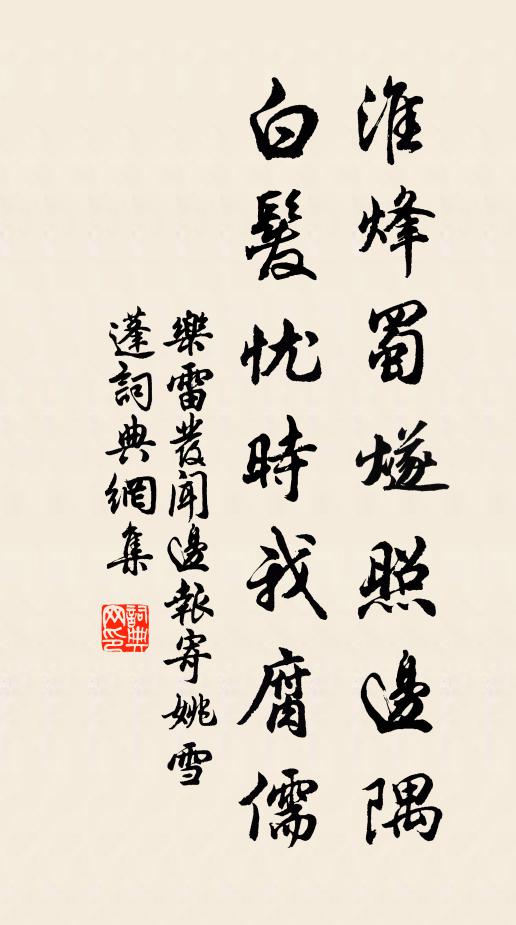 淮烽蜀燧照邊隅
白髮忧時我腐儒
樂雷發聞邊報寄姚雪
蓬詞典網集
詞典网印